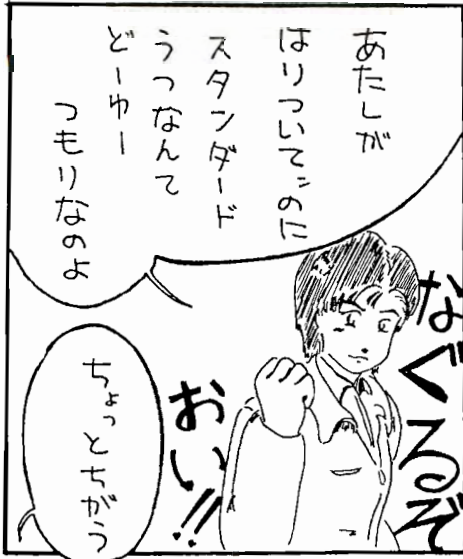 あたしが
はりついてンのに
スタンダード
うつなんて
どーゆー
つもりなのよ
なぐるぞ
おい!!
ちょっとちがう